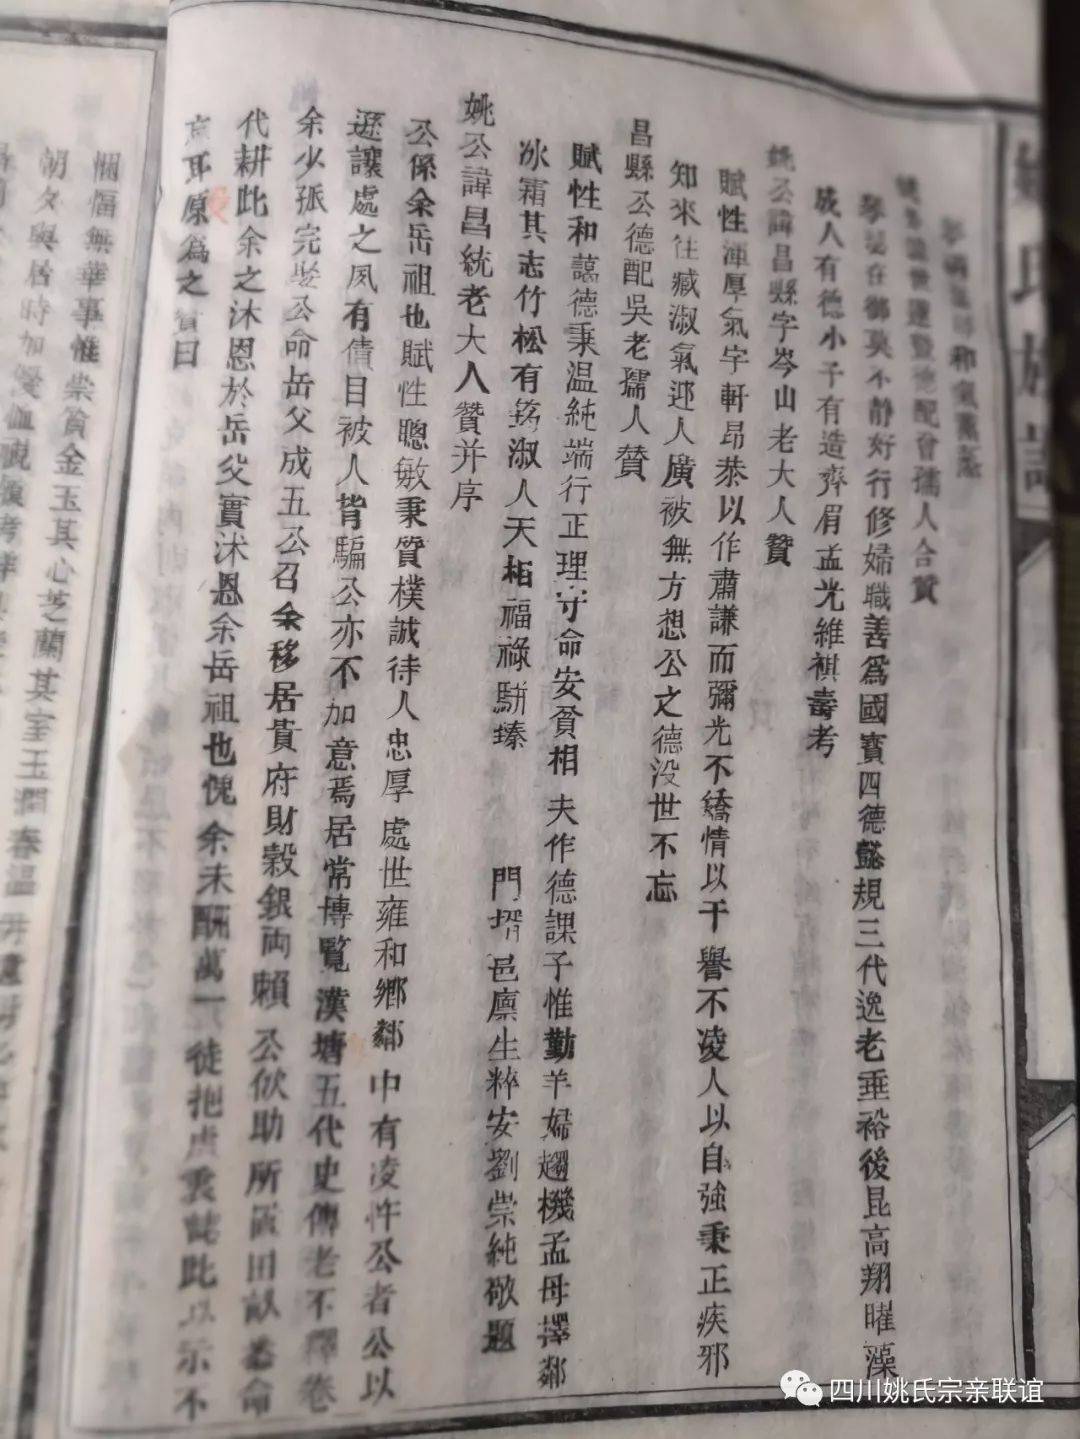 和氣薰蒸
配曾孺人合贊
琴瑟在御莫不靜好行修婦職善為國寶四德懿規三代逸老垂裕後昆高翔曜藻
成人有德小子有造齊眉孟光維祺壽考
姚公諱昌縣字岑山老大人贊
賦性渾厚氣宇軒昂恭以作肅謙而彌光不矯情以干譽不凌人以自強秉正疾邪
知來往臧淑氣迎人廣被無方想公之德没世不忘
昌縣公德配吳老孺人贊
賦性和藹德秉温純端行正理守命安貧相夫作德課子惟勤羊婦趨機孟母擇鄰
冰霜其志竹松有筠淑人天相福祿駢臻 門壻邑廩生粹安劉崇純敬題
姚公諱昌統老大人贊并序
公係余岳祖也賦性聰敏秉質樸誠待人忠厚處世雍和鄉鄰中有凌忤公者公以
遜讓處之夙有債目被人背騙公亦不加意焉居常博覽漢塘五代史傳老不釋卷
余少孤完娶公命岳父成五公召余移居貴府財穀銀両賴公佽助所置田畝悉命
代耕此余之沐恩於岳父實沐恩余岳祖也愧余未酬萬一徒抱虛衷誌此以示不
忘耳原為之贊曰
悃愊無華事惟崇質金玉其心芝蘭其室玉潤春温
朝夕與居時加愛恤
姚氏族譜
四川姚氏宗亲联谊